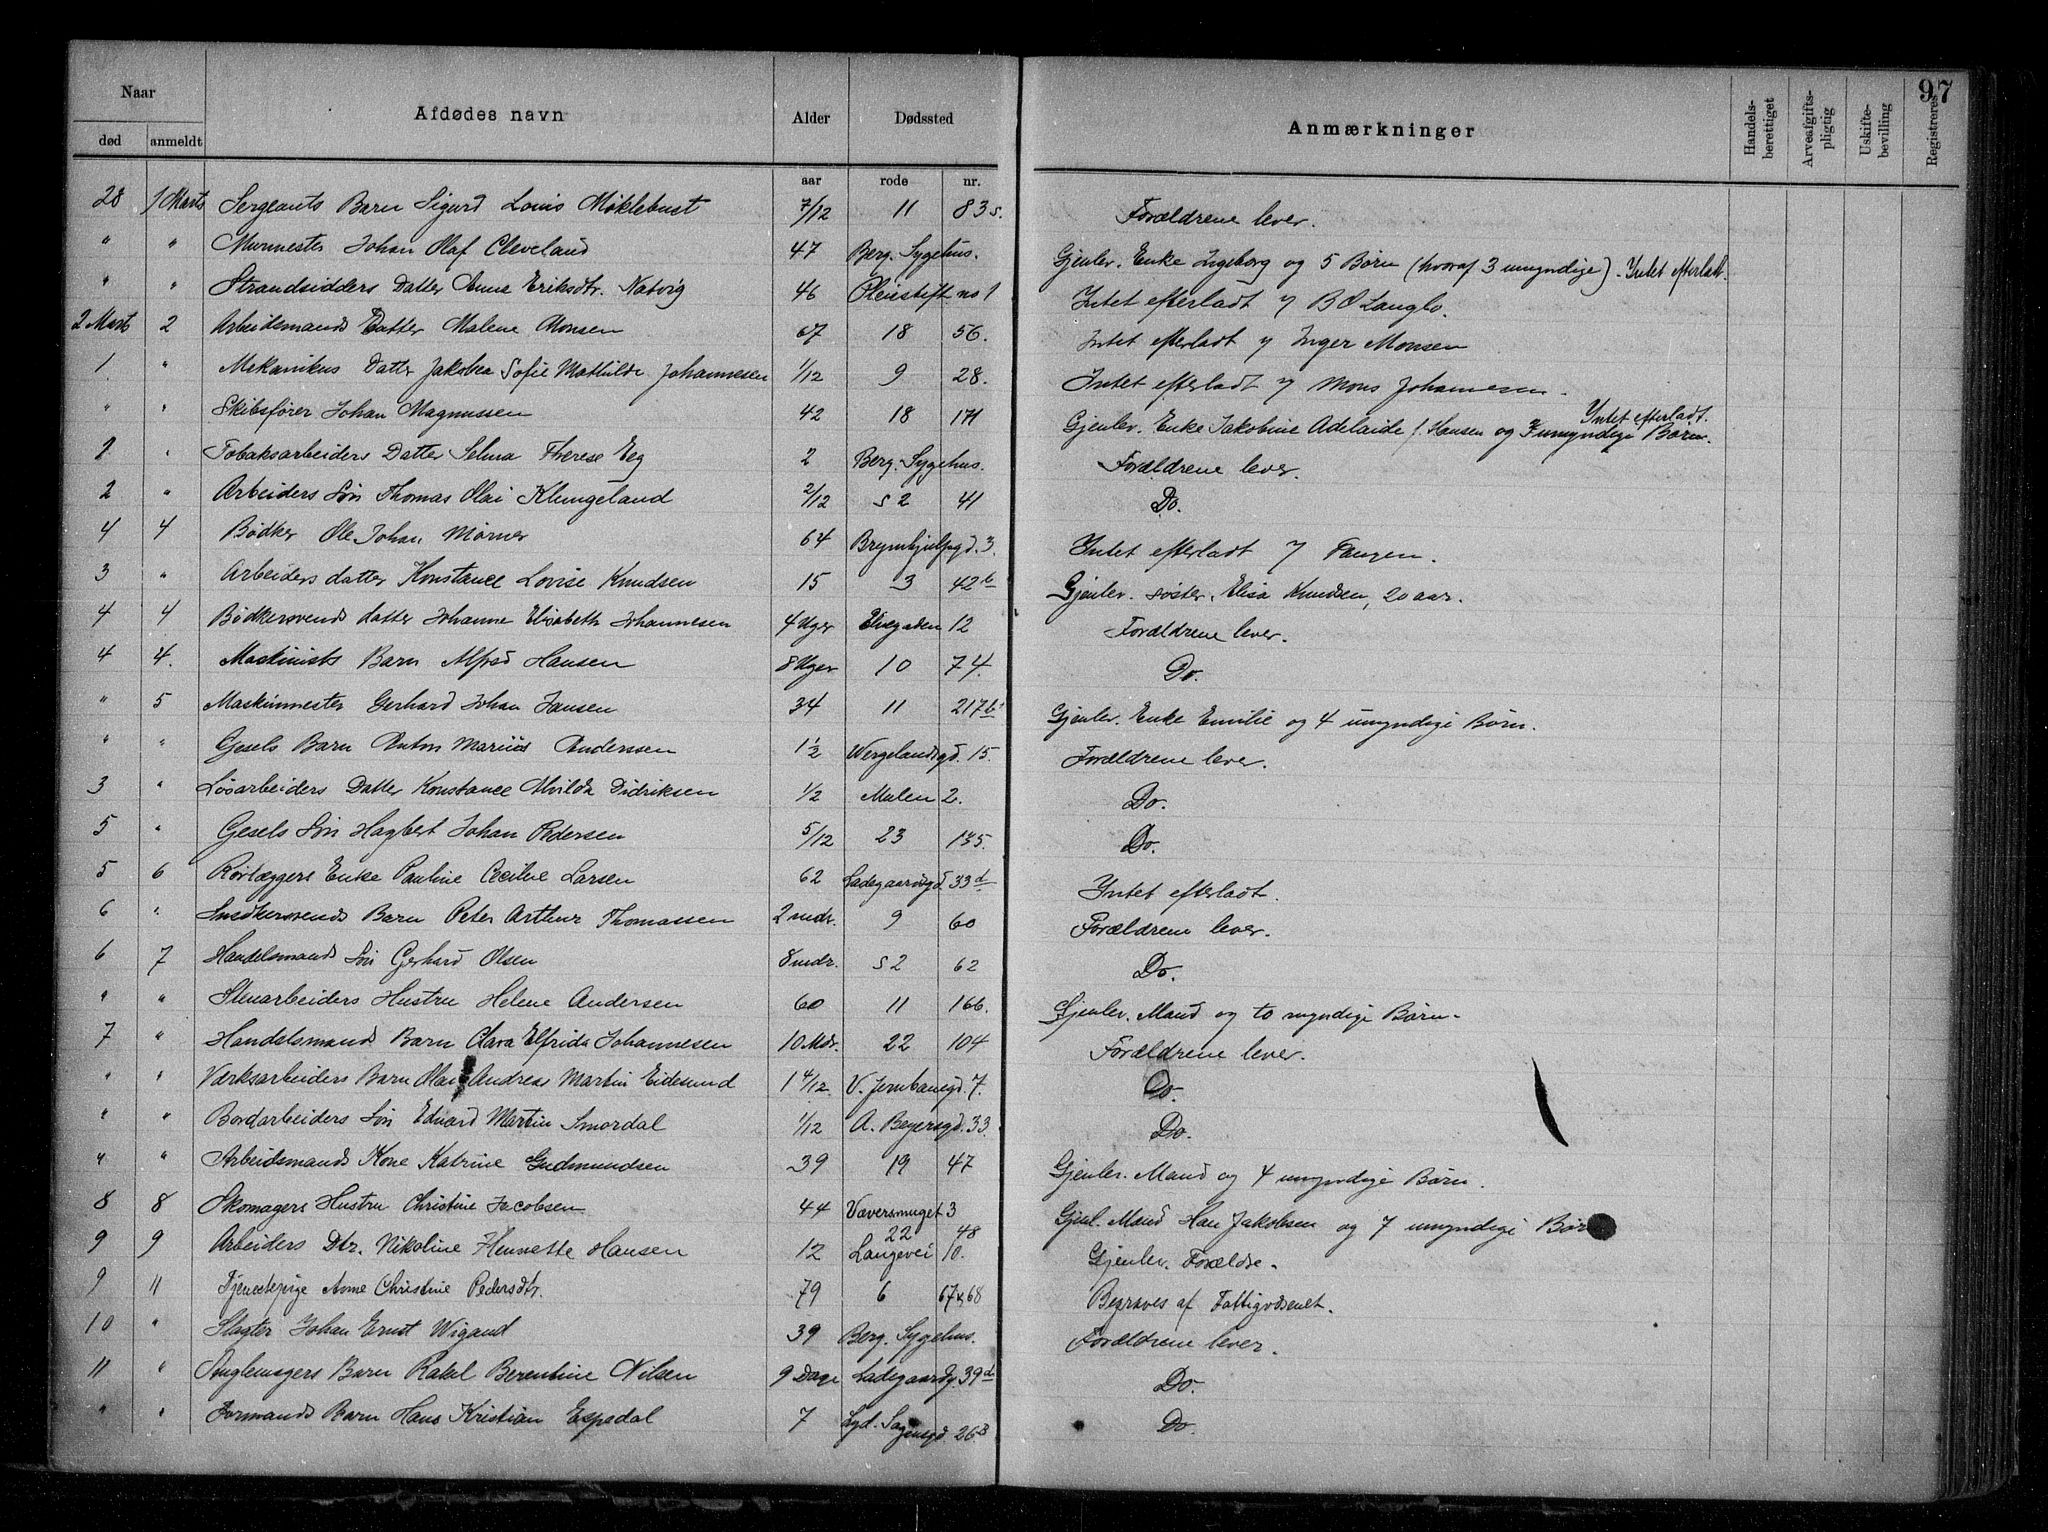 97
Naar Afdødes navn Alder Dødssted Anmærkninger Handelsberettiget Arveafgiftspligtig Uskiftebevilling Registreret
død anmeldt
aar rode nr.
28 1 Marts Sergeants Barn Sigurd Louis Møklebust 7/12 11 83 s. Forældrene lever.
" " Murmester Johan Olaf Cleveland 47 Berg. Sygehus. Gjenlev. Enke Ingeborg og 5 Børn (hvoraf 3 umyndige). Intet efterladt.
" " Strandsidders Datter Anna Eriksdtr. Natvig 46 Pleiestift no 1 Intet efterladt / B O Langlo.
2 Marts 2 Arbeidsmands Datter Malene Monsen 67 18 56. Intet efterladt / Inger Monsen
1 " Mekanikus Datter Jakobea Sofie Mathilde Johannesen 1/12 9 28. Intet efterladt / Mons Johannesen.
" " Skibsfører Johan Magnussen 42 18 171 Gjenlev. Enke Jakobine Adelaide f. Hansen og 7 umyndige Børn. Intet efterladt.
2 " Tobaksarbeiders Datter Selma Therese Eeg 2 Berg. Sygehus. Forældrene lever.
2 " Arbeiders Søn Thomas Olai Klungeland 2/12 s 2 41 Do.
4 4 Bødker Ole Johan Mørner 64 Brynhjulfsgd. 3. Intet efterladt /
3 " Arbeiders datter Konstance Lovise Knudsen 15 3 42 b Gjenlev. søster, Elisa Knudsen, 20 aar.
4 4 Bødkersvends datter Johanne Elisabeth Johannesen 4 Uger Elvegaden 12 Forældrene lever.
4 4. Maskinists Barn Alfred Hansen 8 Uger 10 74. Do.
" 5 Maskinmester Gerhard Johan Jansen 34 11 217 b. Gjenlev. Enke Emilie og 4 umyndige Børn.
" " Gesels Barn Anton Marius Anderssen 1½ Wergelandsgd. 15. Forældrene lever.
3 " Løsarbeiders Datter Konstance Alvilda Didriksen ½ Malen 2. Do.
5 " Gesels Søn Hagbert Johan Pedersen 5/12 23 135. Do.
5 6 Rørlæggers Enke Pauline Cecilie Larsen 62 Ladegaardsgd. 33 d Intet efterladt.
6 " Snedkersvends Barn Peter Arthur Thomassen 2 mdr. 9 60 Forældrene lever.
6 7 Handelsmands Søn Gerhard Olsen 8 mdr. s 2 62 Do.
" " Stenarbeiders Hustru Helene Andersen 60 11 166. Gjenlev. Mand og to myndige Børn.
7 " Handelsmands Barn Clara Elfrida Johannesen 10 Mdr. 22 104 Forældrene lever.
" " Værksarbeiders Barn Olai Andreas Martin Eidesund 1 4/12. V. Jernbanegd. 7. Do.
" " Bordarbeiders Søn Edvard Martin Smørdal 1/12 A. Beyersgd. 33. Do.
" " Arbeidsmands Kone Katrine Gudmundsen 39 19 47 Gjenlev. Mand og 4 umyndige Børn.
8 8 Skomagers Hustru Christine Jacobsen 44 Væversmuget 3 Gjenl. Mand Han Jakobsen og 7 umyndige Børn
9 9 Arbeiders Dtr. Nikoline Henriette Hansen 12 Langevei 10. 22 48 Gjenlev. Forældre.
9 11 Tjenestepige Anne Christine Pedersdtr. 79 6 67 x 68 Begraves af Fattigvæsenet.
10 " Slagter Johan Ernst Wigand 39 Berg. Sygehus. Forældrene lever.
11 " Anglemagers Barn Rakel Berentine Nilsen 9 Dage Ladegaardsg. 39 d Do.
" " Formands Barn Hans Kristian Espedal 7 Lyd. Sagensgd. 26 B Do.